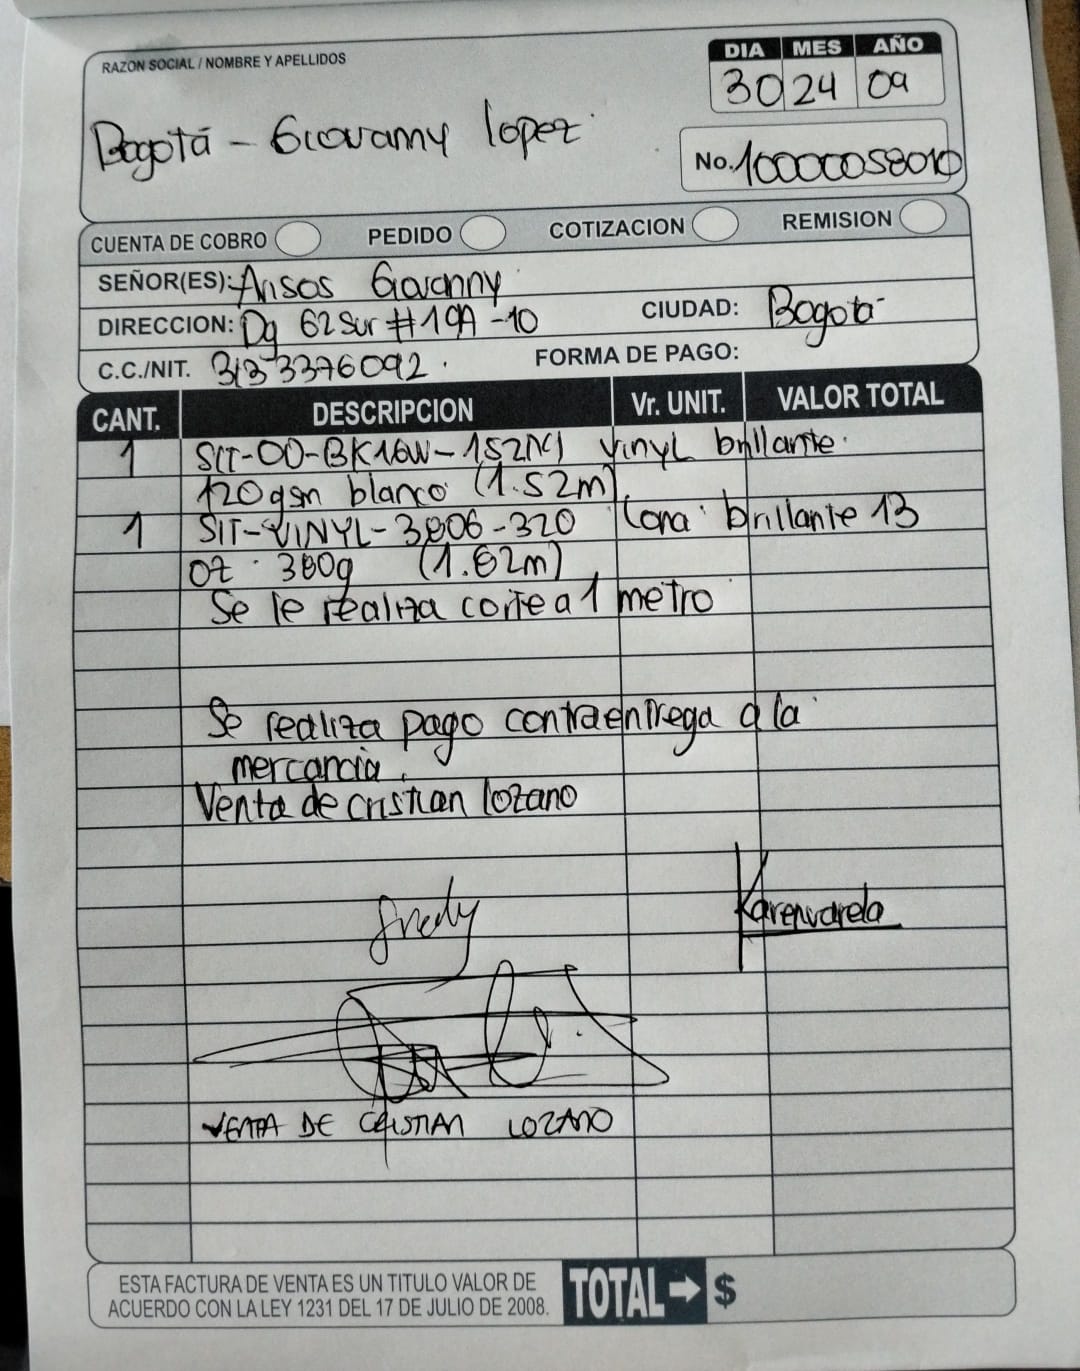 RAZON SOCIAL / NOMBRE Y APELLIDOS
DIA MES AÑO
30 24 09
Bogotá - Giovanny lopez
No. 10000058010
CUENTA DE COBRO PEDIDO COTIZACION REMISION
SEÑOR(ES): Avisos Giovanny
DIRECCION: Dg 62 Sur # 19A - 10 CIUDAD: Bogota
C.C./NIT. 313 3376092. FORMA DE PAGO:
CANT. DESCRIPCION Vr. UNIT. VALOR TOTAL
1 vinyl brillante
120gsm blanco (1.52m)
1 SIT-VINYL-3806-320 Lona brillante 13
oz 380g (1.62m)
Se le realiza corte a 1 metro
Se realiza pago contraentrega a la
mercancia.
Venta de cristian lozano
Fredy
Karen varela
VENTA DE CRISTIAN LOZANO
ESTA FACTURA DE VENTA ES UN TITULO VALOR DE
ACUERDO CON LA LEY 1231 DEL 17 DE JULIO DE 2008.
TOTAL → $